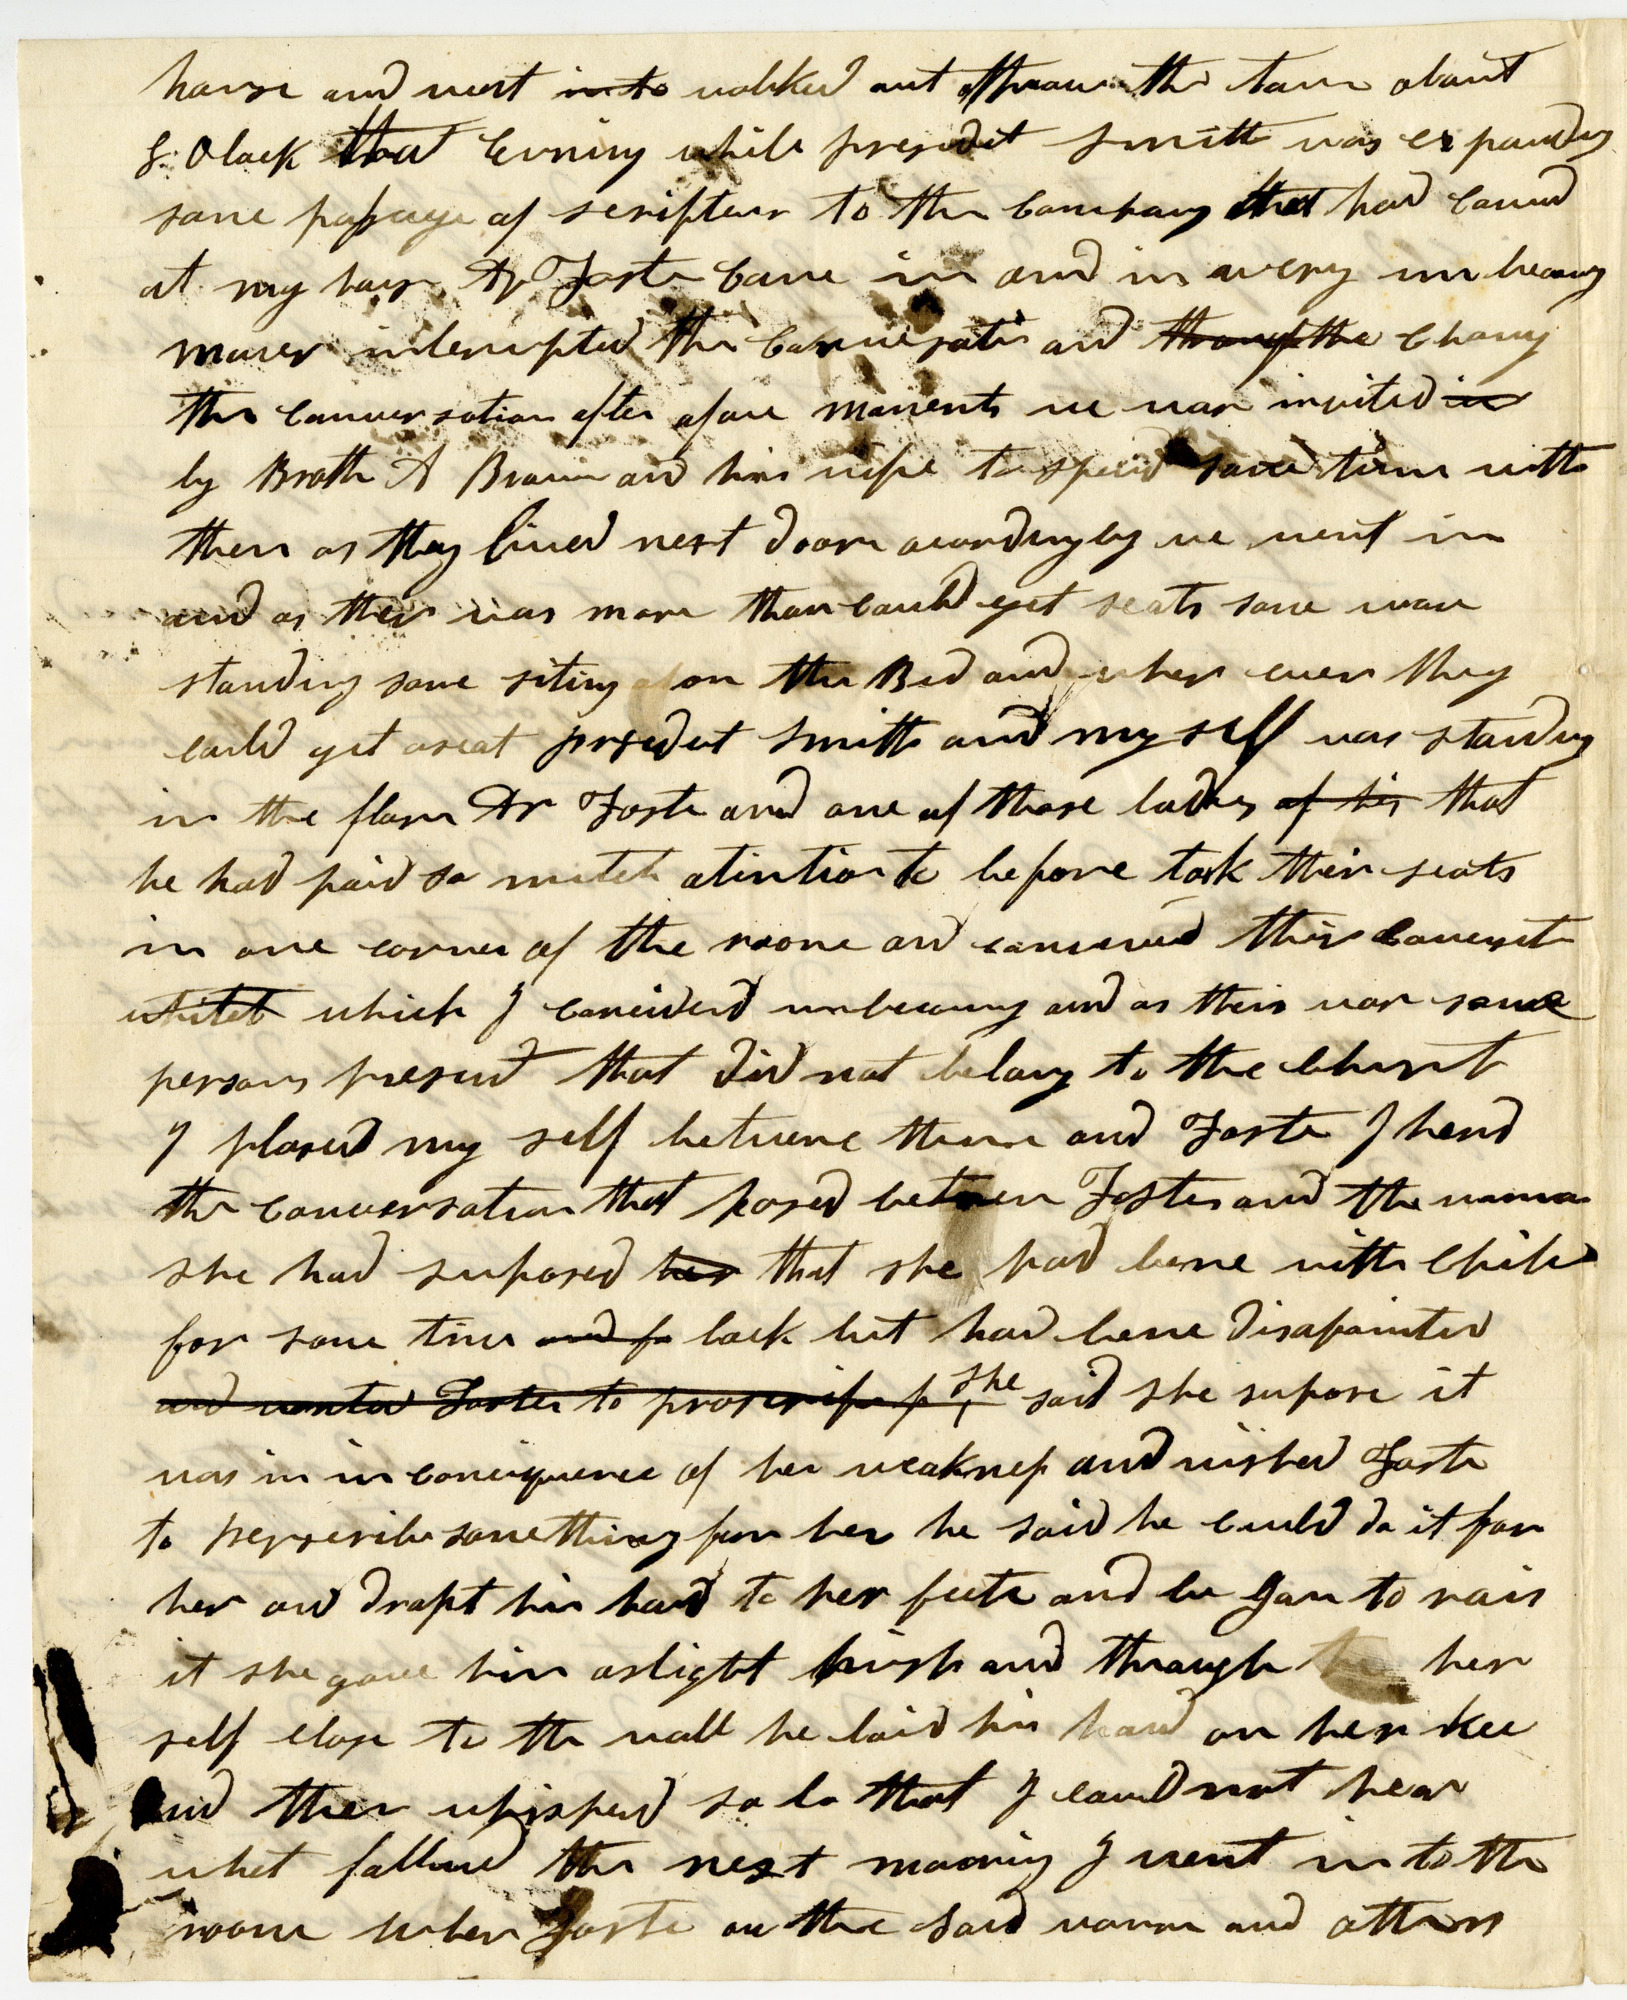 house and went into walked out throu the town about
8 Olock that Evening while presedt Smith was expounding
some passage of scriptuer to the Company that had Comed
at my hous Dr Foster Came in and in avery un becoming
maner interupted the Conversatin and though the Chang
the Conversation after afue moments we ware invited in
by Broth A Brown and his wife to spend some time with
them as they lived next doore acordingly we went in
and as their was more than could get seats some ware
standing some siting on the Bed and wher ever they
could get aseat presedent Smith and my self was standing
in the floor Dr Foster and one of those ladys of his that
he had paid so mutch atention to before took their seats
in one corner of the roome and their Conversat
whiteh which I Concidered unbecoming and as their war some
persons present that did not belong to the Church
I plased my self betwene theme and Foster I heard
the Conversation that posed between Foster and the woman
she had suposed her that she had bene with Child
for some time and fo back but had bene disapointed
and wanted Foster to proscripe p she said she supose it
was in in Conciquence of her weakness and wished Foster
to perscribe something for her he said he could do it for
her and drapt his hand to her feete and be gan to rais
it she gave him aslight push and through her
self close to the wall he laid his hand on her kee
and then whisperd so lo that I could not hear
whet follwed the next morning I went in to the
room wher Foster on the said woman and others